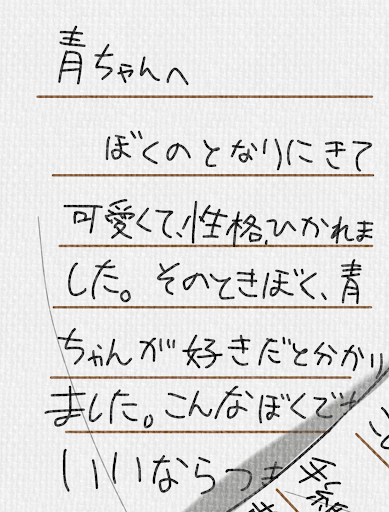 青ちゃんへ
ぼくのとなりにきて
可愛くて、性格、ひかれま
した。そのときぼく、青
ちゃんが好きだと分かり
ました。こんなぼくでも
いいならつき
手紙